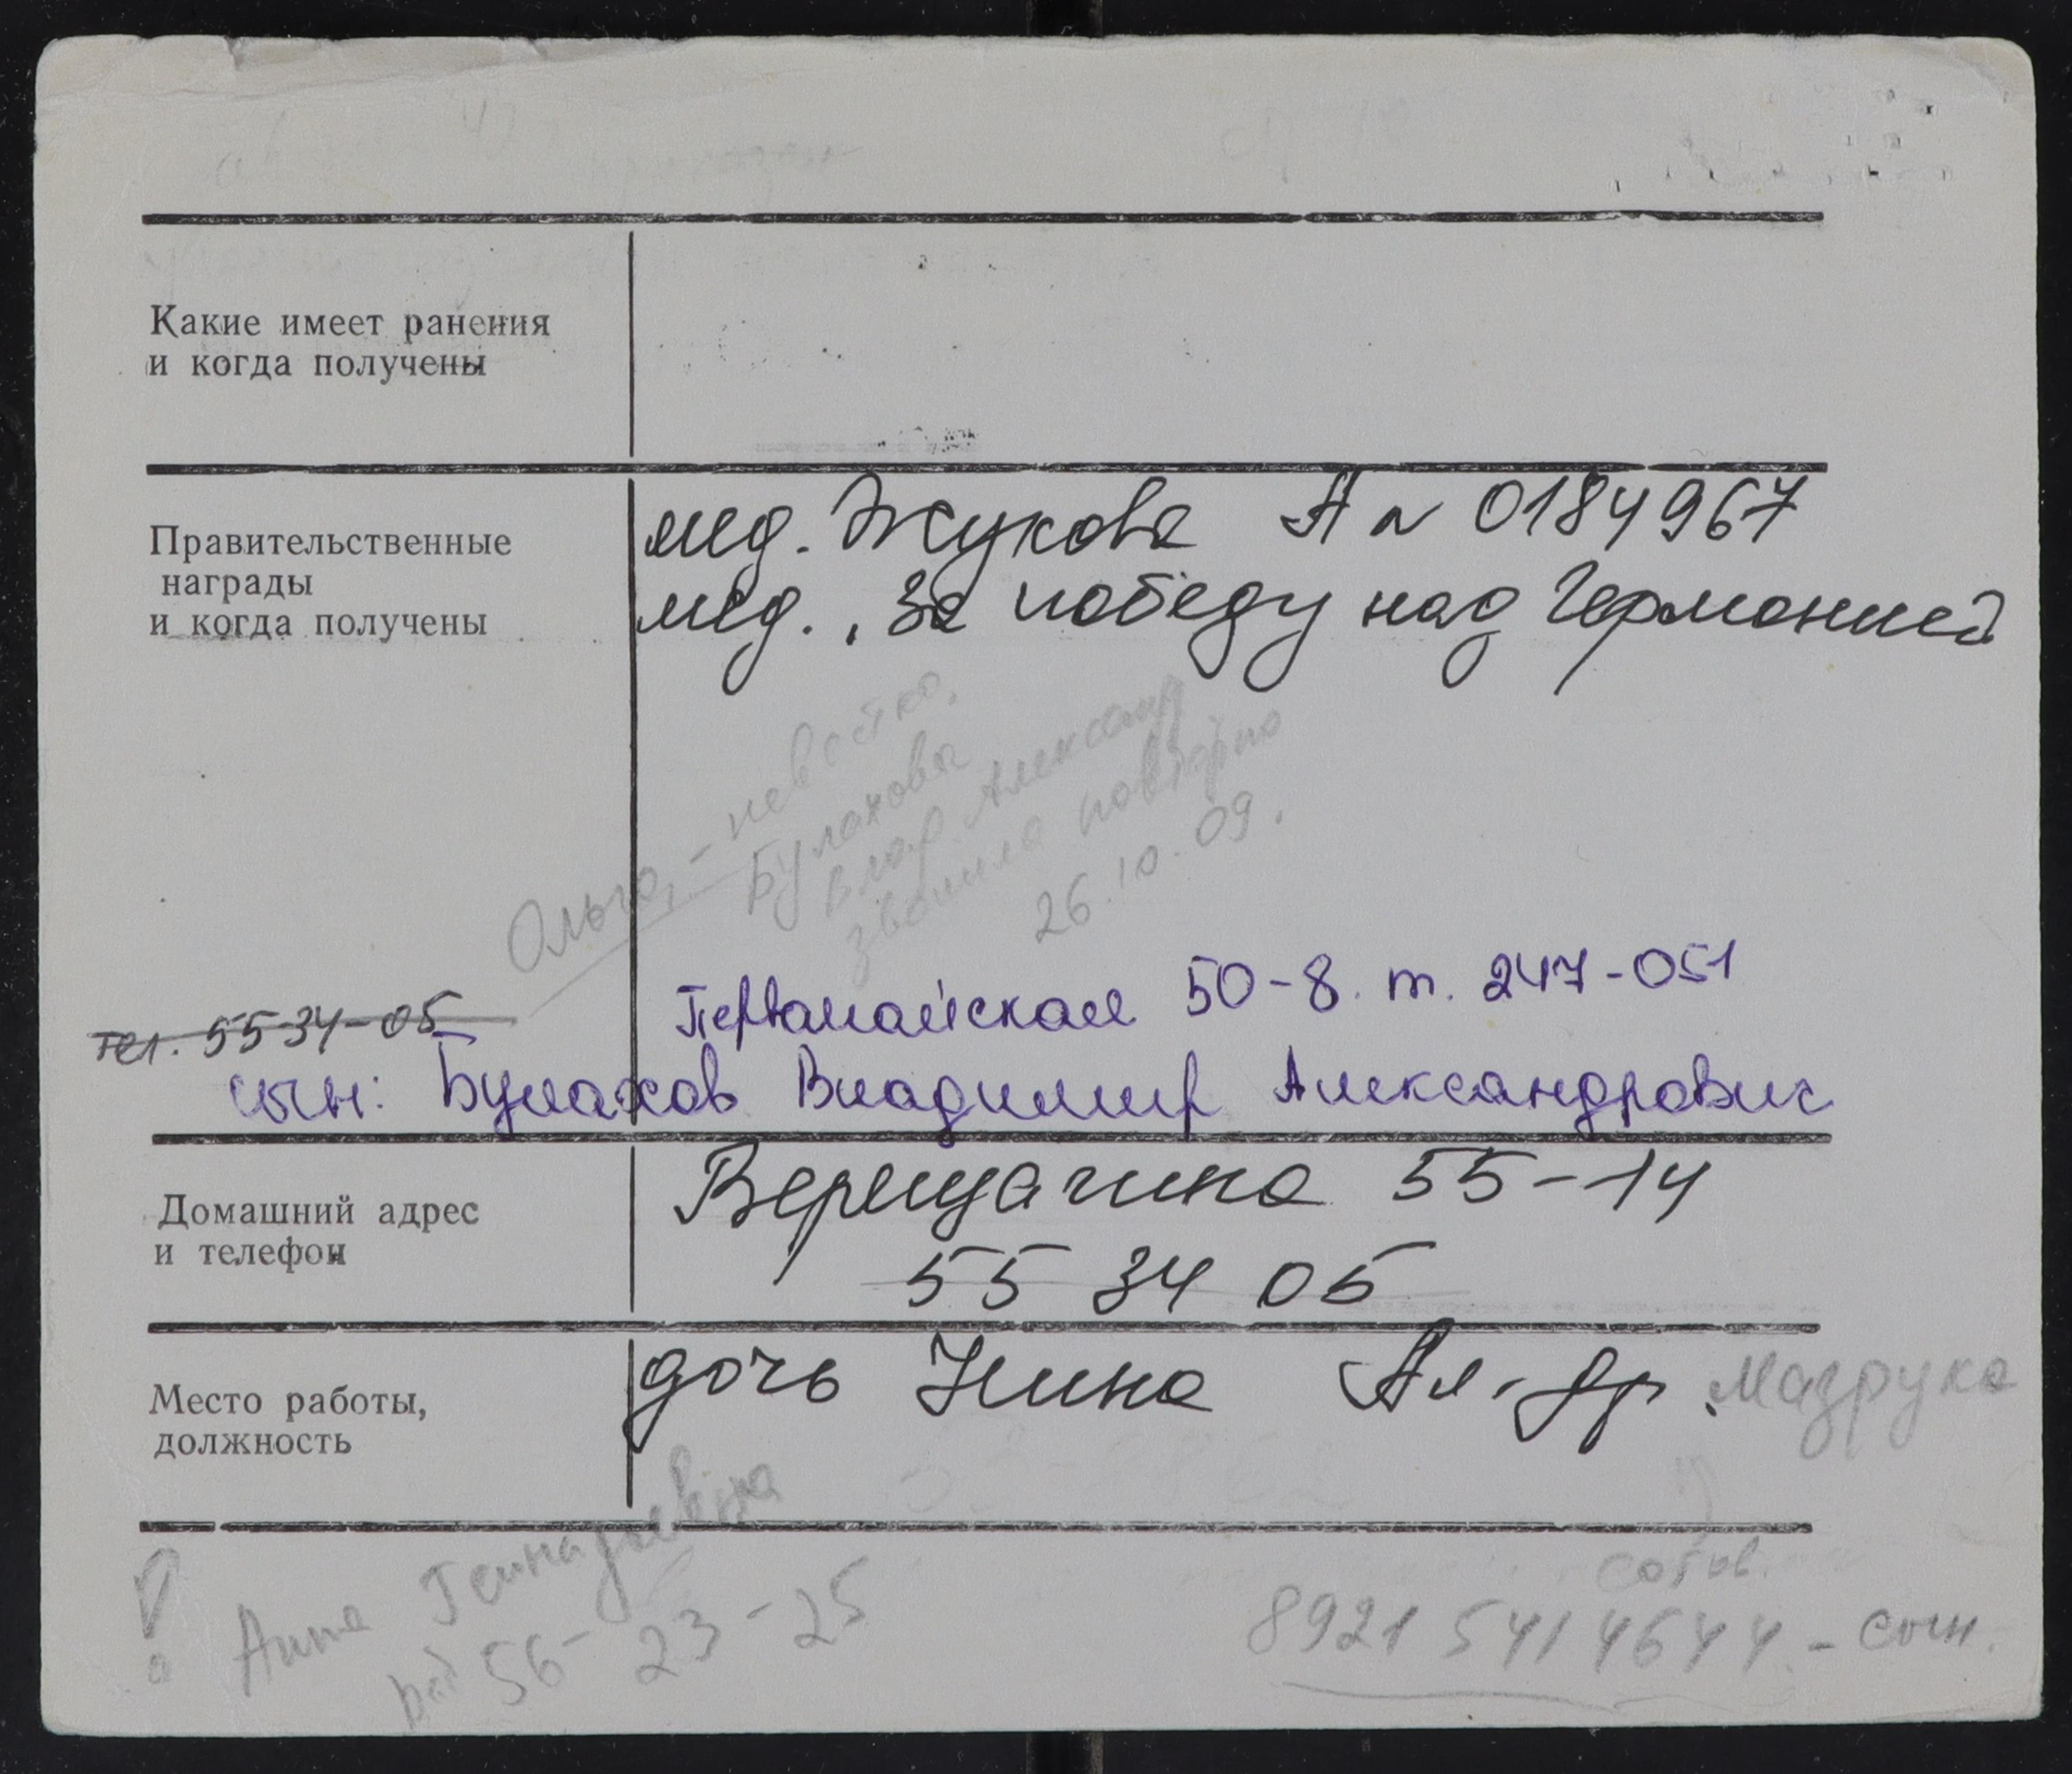 Какие имеет ранения
и когда получены
Правительственные
награды
и когда получены
мед. Жукова А № 0184967
мед. „За победу над Германией
Ольга, - невестка,
Булахова
Влад Александр
звонила повторно
26.10.09.
Первомайская 50-8. т. 247-051
тел. 5534-05
сын: Булахов Владимир Александрович
Домашний адрес
и телефон
Верещагина 55-14
55 34 05
Место работы,
должность
дочь Нина Ал-др. Мазрука
Анна Геннадьевна
раб 56-23-25
сотов.
8921 5414644 - сын.